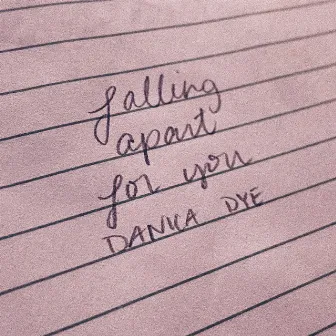 falling
apart
for you
DANIIA DYE